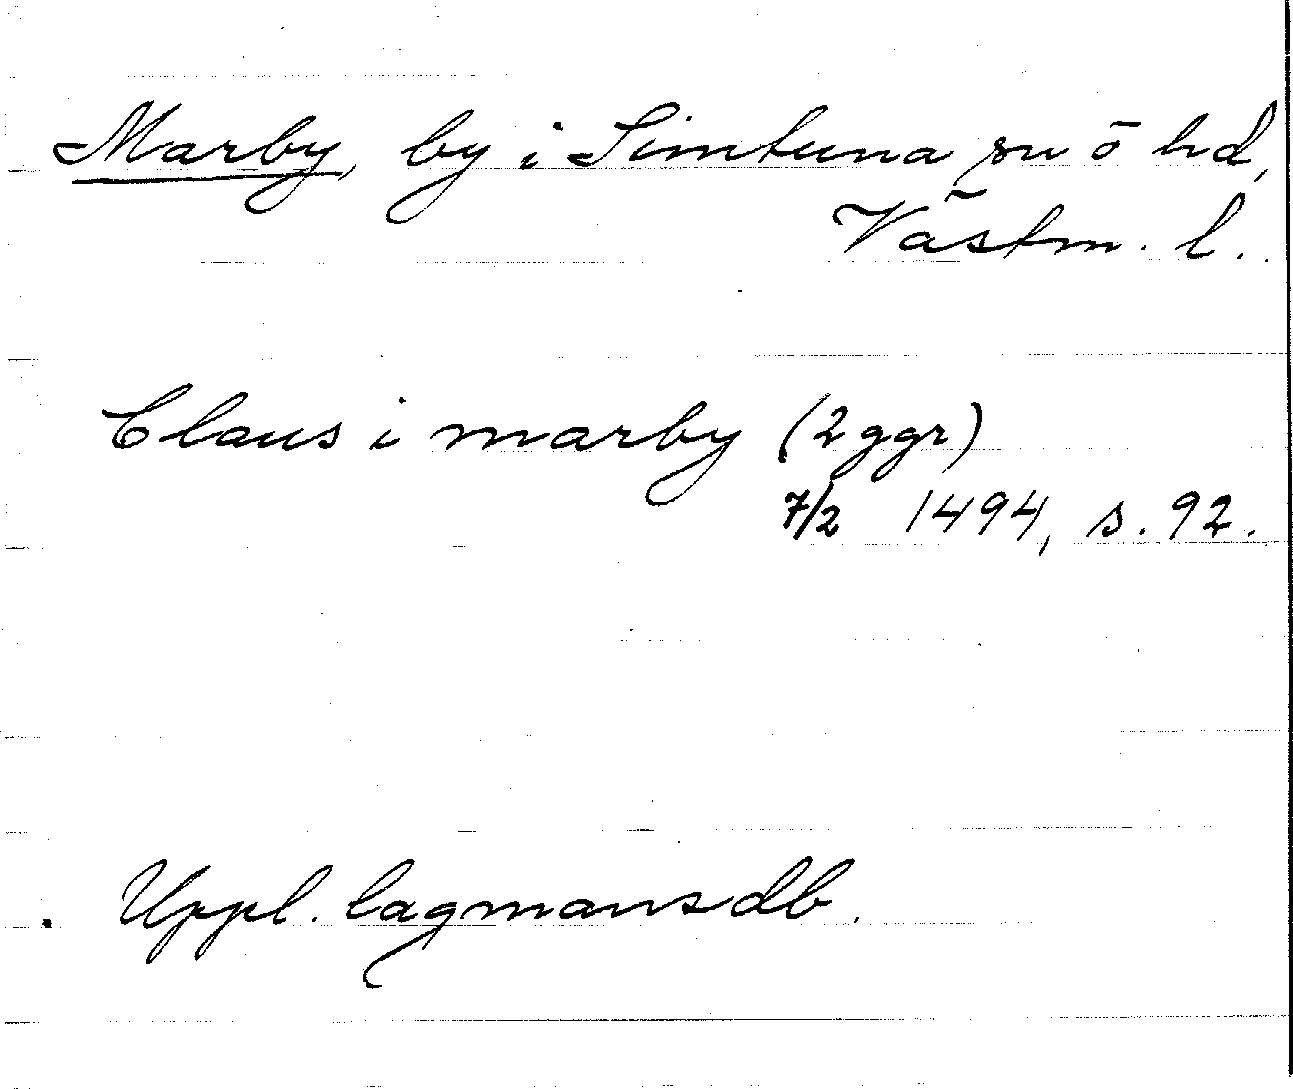 Marby, by i Simtuna sn ō hd,
Västm. l.
Claus i marby (2 ggr)
7/2 1494, s. 92.
Uppl. lagmansdb.